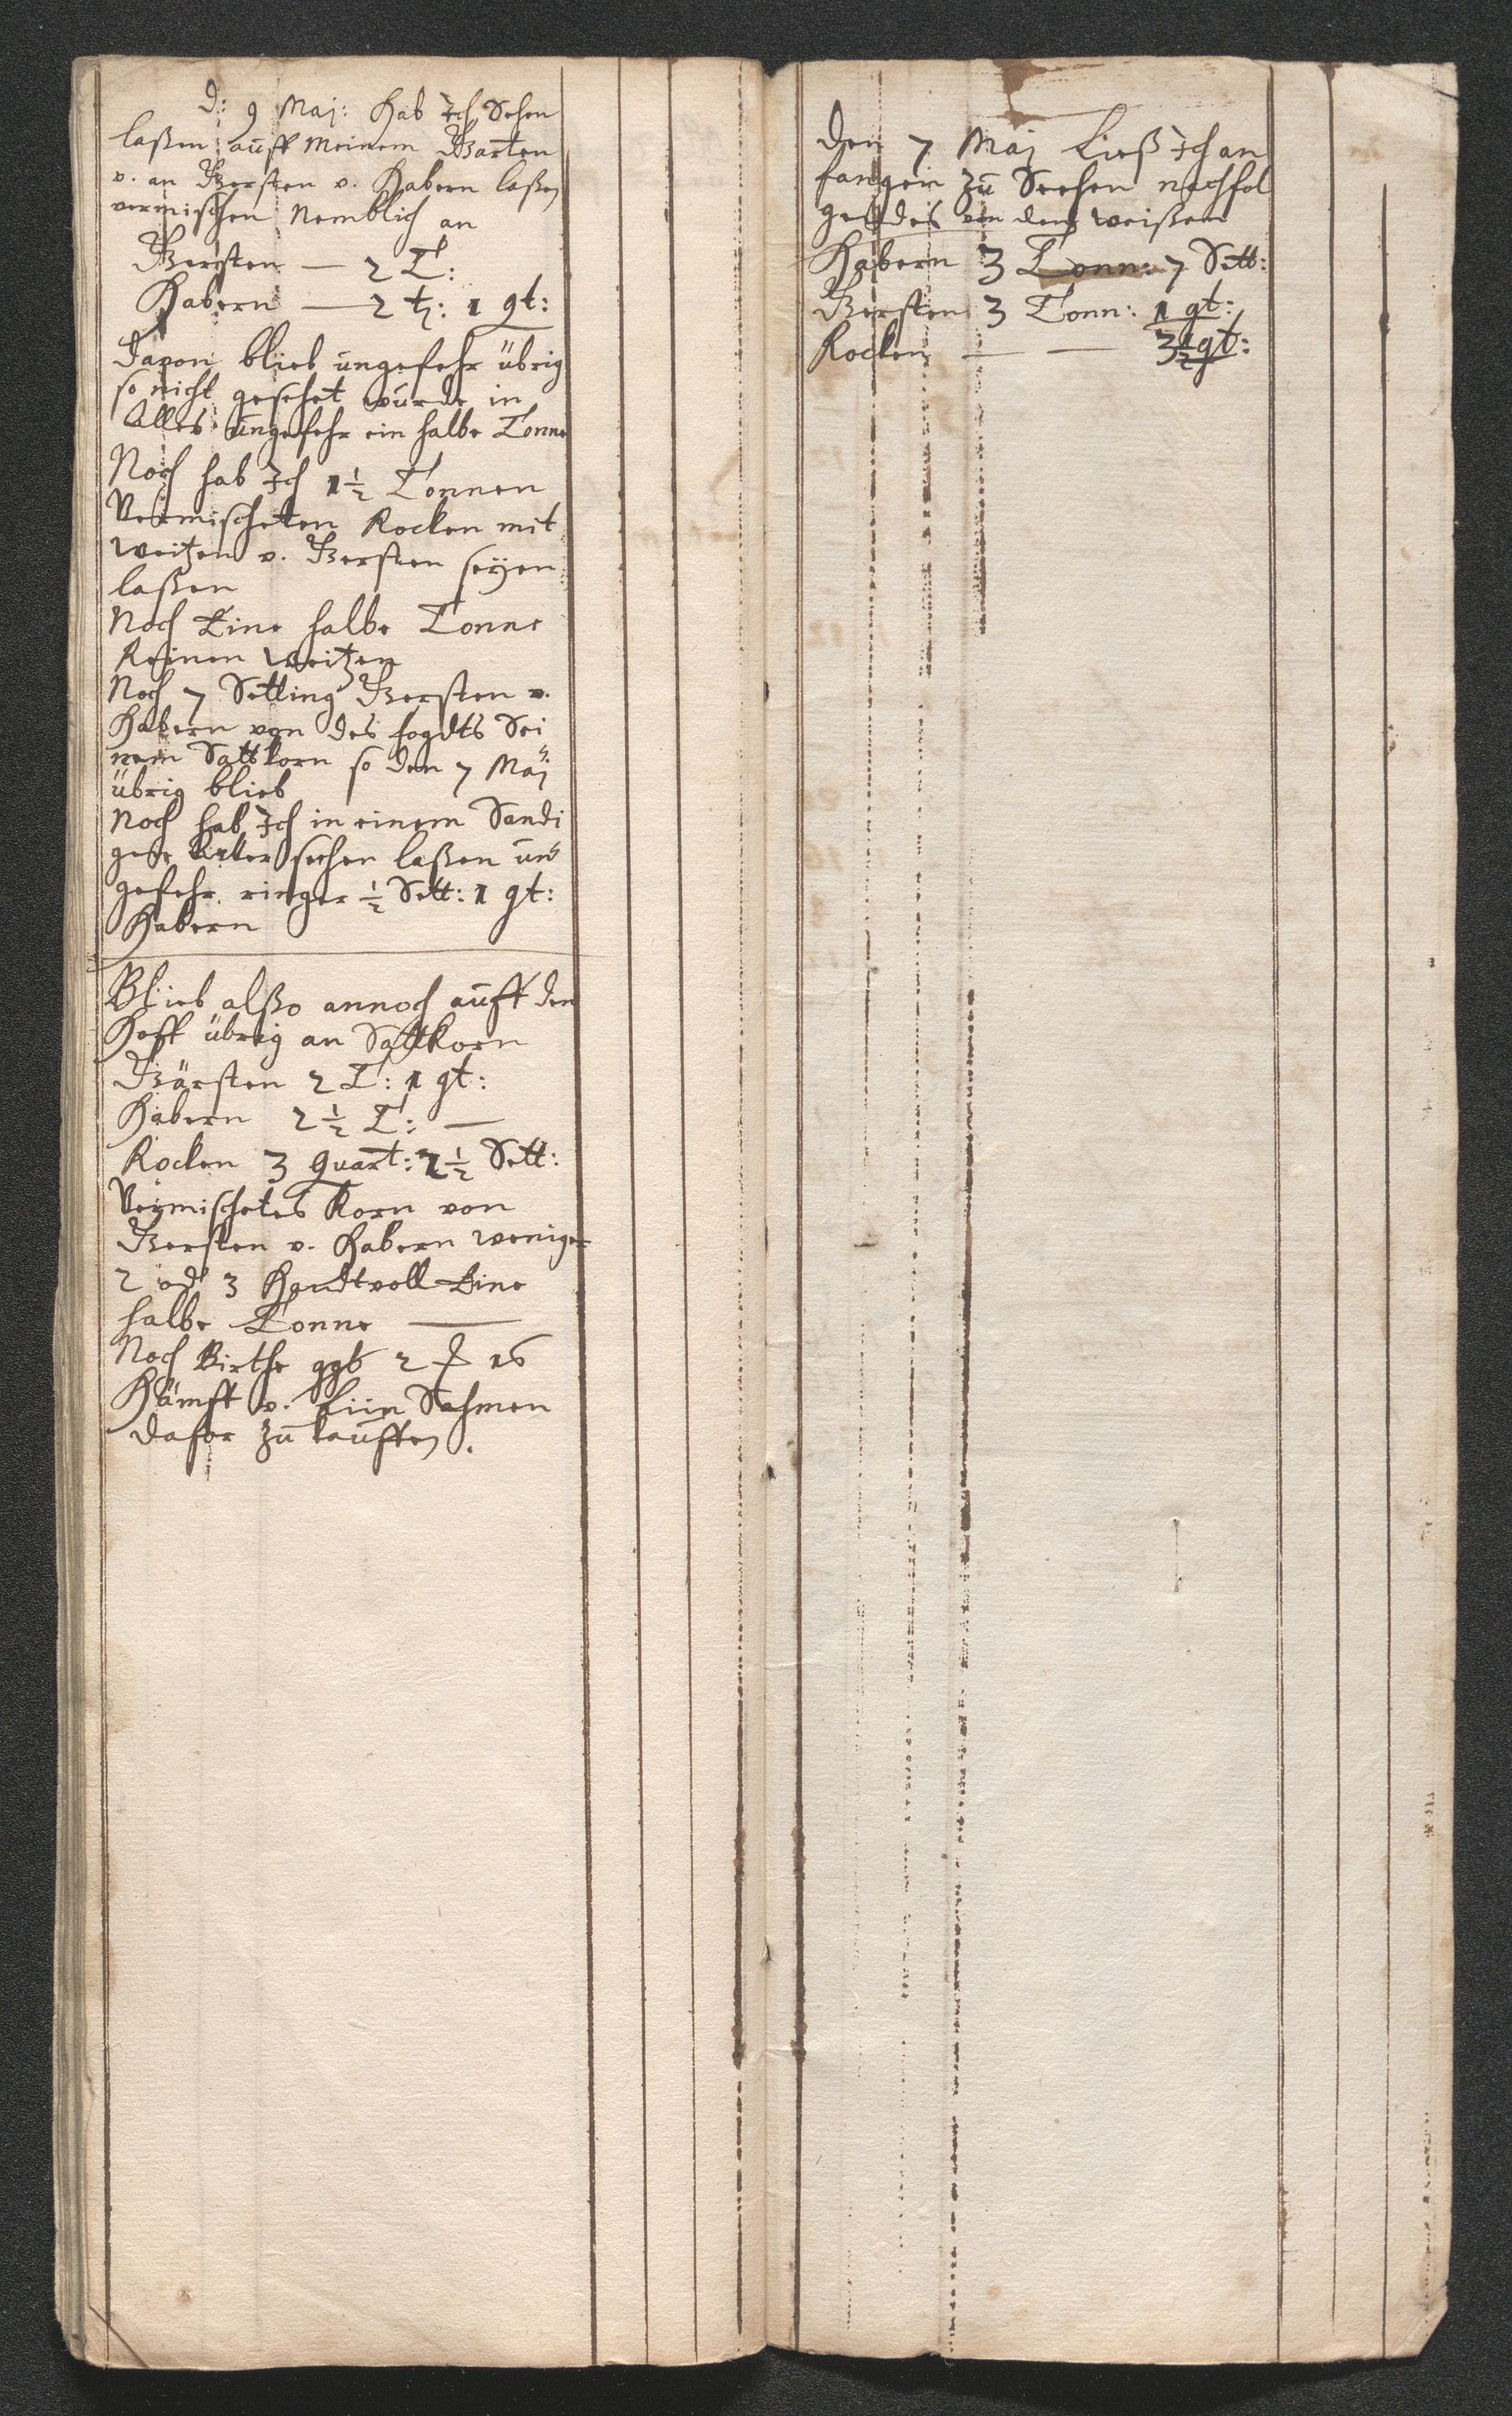 d: 9 Maj: Hab Ich Sehen
laßen auff meinem Garten
v. an Gersten v. Habern laßen
vermischen Nemblich an
Gersten — 2 T:
Habern — 2 t: 1 qt:
Davon blieb ungefehr übrig
so nicht gesehet wurde in
Alles ungefehr ein halbe Tonne
Noch hab Ich 1½ Tonnen
Vermischeten Rocken mit
Weitzen v. Gersten seyen
laßen
Noch Eine halbe Tonne
Reinen Weitzen
Noch 7 Setting Gersten v.
Habern von des fogdts Sei
nem Sattkorn so den 7 Maj
übrig blieb
Noch hab Ich in einem Sandi
gen Acker sehen laßen un
gefehr ringer ½ Sett: 1 qt:
Habern
Blieb alßo annoch auff den
Hoff übrig an Sattkorn
Gärsten 2 T: 1 qt:
Habern 2½ T: —
Rocken 3 Quart: 2½ Sett:
Vermischetes Korn von
Gersten v. Habern weniger
2 od 3 Handtvoll Eine
halbe Tonne —
Noch Birthe 2 16
Hämff v. Liin Sahmen
dafor zu kauffen.
Den 7 Maj Ließ Ich an
fangen zu Seehen nachfol
gendes von dem weißen
Habern 3 Tonn: 7 Sett:
Gersten 3 Tonn: 1 qt:
Rocken — — 3½ qt: